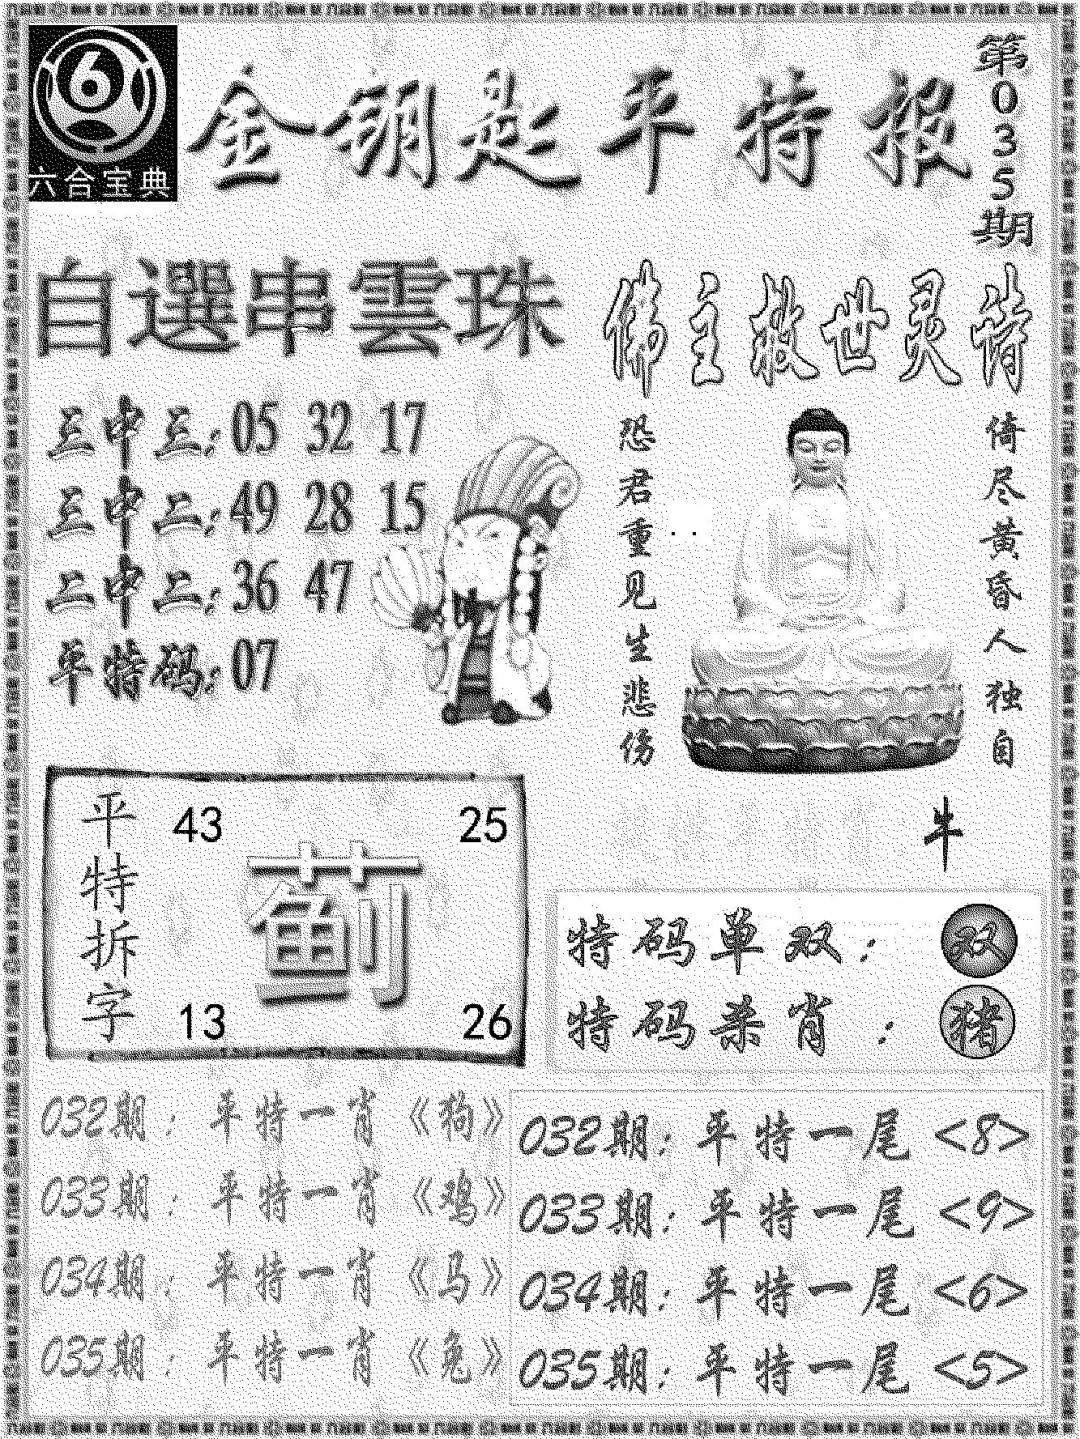 六合宝典
金钥匙平特报
第035期
自選串雲珠
三中三:05 32 17
三中二:49 28 15
二中二:36 47
平特码:07
佛主救世灵诗
倚尽黄昏人独自
恐君重见生悲伤
牛
平特拆字
43 25
蓟
13 26
特码单双: 双
特码杀肖: 猪
032期: 平特一肖《狗》
033期: 平特一肖《鸡》
034期: 平特一肖《马》
035期: 平特一肖《兔》
032期: 平特一尾 <8>
033期: 平特一尾 <9>
034期: 平特一尾 <6>
035期: 平特一尾 <5>